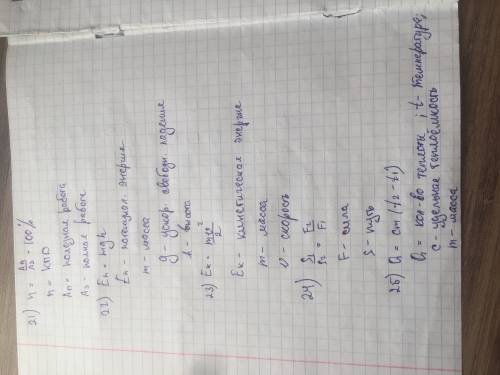 21) η = Aп/Aз · 100%
η = КПД
Aп - полезная работа
Aз - полная работа
22) Eп = mgh
Eп - потенциал. энергия
m - масса
g - ускор свободн падения
h - высота
23) Eк = mv²/2
Eк - кинетическая энергия
m - масса
v - скорость
24) S1/S2 = F2/F1
F - сила
S - путь
25) Q = cm (t2 - t1)
Q = кол-во теплоты ; t - температура;
c - удельная теплоёмкость
m - масса